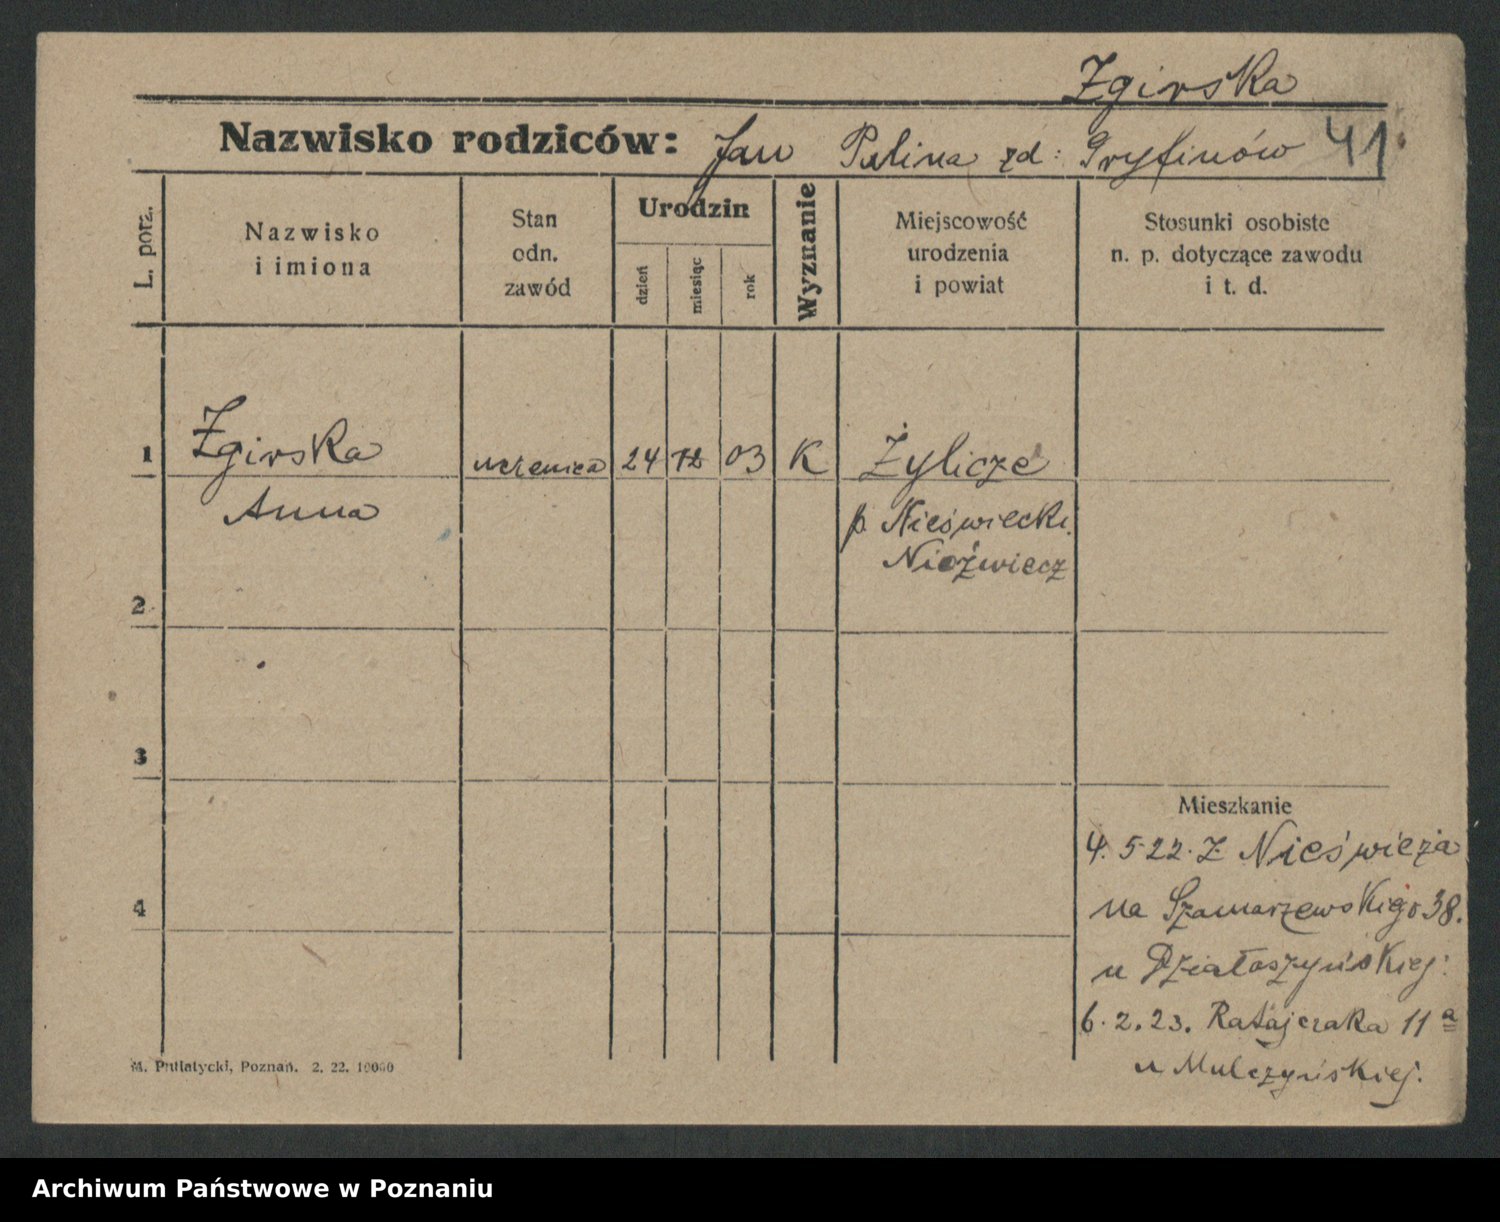 Zgirska
Nazwisko rodziców: Jan Palina zd: Gryfinów 41.
L. porz.
Nazwisko
i imiona
Stan
odn.
zawód
Urodzin
dzień
miesiąc
rok
Wyznanie
Miejscowość
urodzenia
i powiat
Stosunki osobiste
n. p. dotyczące zawodu
i t. d.
1 Zgirska uczenica 24 12 03 K Żylicze
Anna p. Nieświecki.
Nieźwiecz
2
3
4
Mieszkanie
4. 5-22. Z Nieświeża
na Szamarzewskiego 38.
u Działoszyńskiej:
6. 2. 23. Ratajczaka 11 a
u Mulczyńskiej.
M. Putiatycki, Poznań. 2. 22. 10000
Archiwum Państwowe w Poznaniu